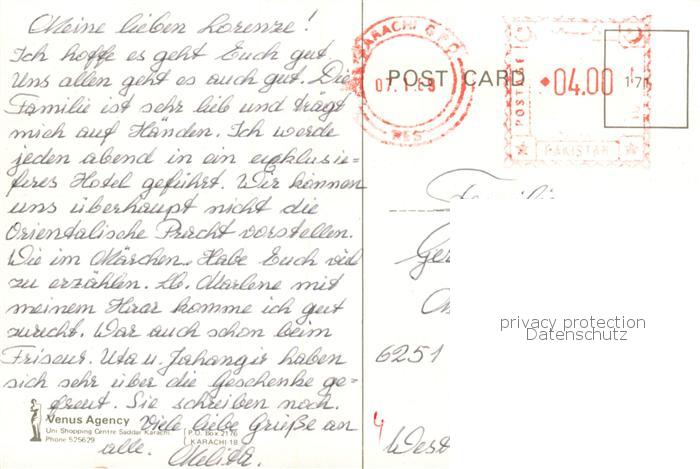 Meine lieben Lorenze!
Ich hoffe es geht Euch gut.
Uns allen geht es auch gut. Die
Familie ist sehr lieb und trägt
mich auf Händen. Ich werde
jeden abend in ein exklusi=
feres Hotel geführt. Wir können
uns überhaupt nicht die
Orientalische Pracht vorstellen.
Wie im Märchen. Habe Euch viel
zu erzählen. Lb. Marlene mit
meinem Haar komme ich gut
zurecht. War auch schon beim
Friseur. Uta u. Jahangir haben
sich sehr über die Geschenke ge=
freut. Sie schreiben noch.
Viele liebe Grüße an
alle.
Venus Agency
Uni Shopping Centre Saddar Karachi
Phone 525629
P.O. Box 2176
KARACHI-18
KARACHI G.P.O.
POST CARD
POSTAGE
04.00
PAKISTAN
Familie
6251
4
West
privacy protection
Datenschutz